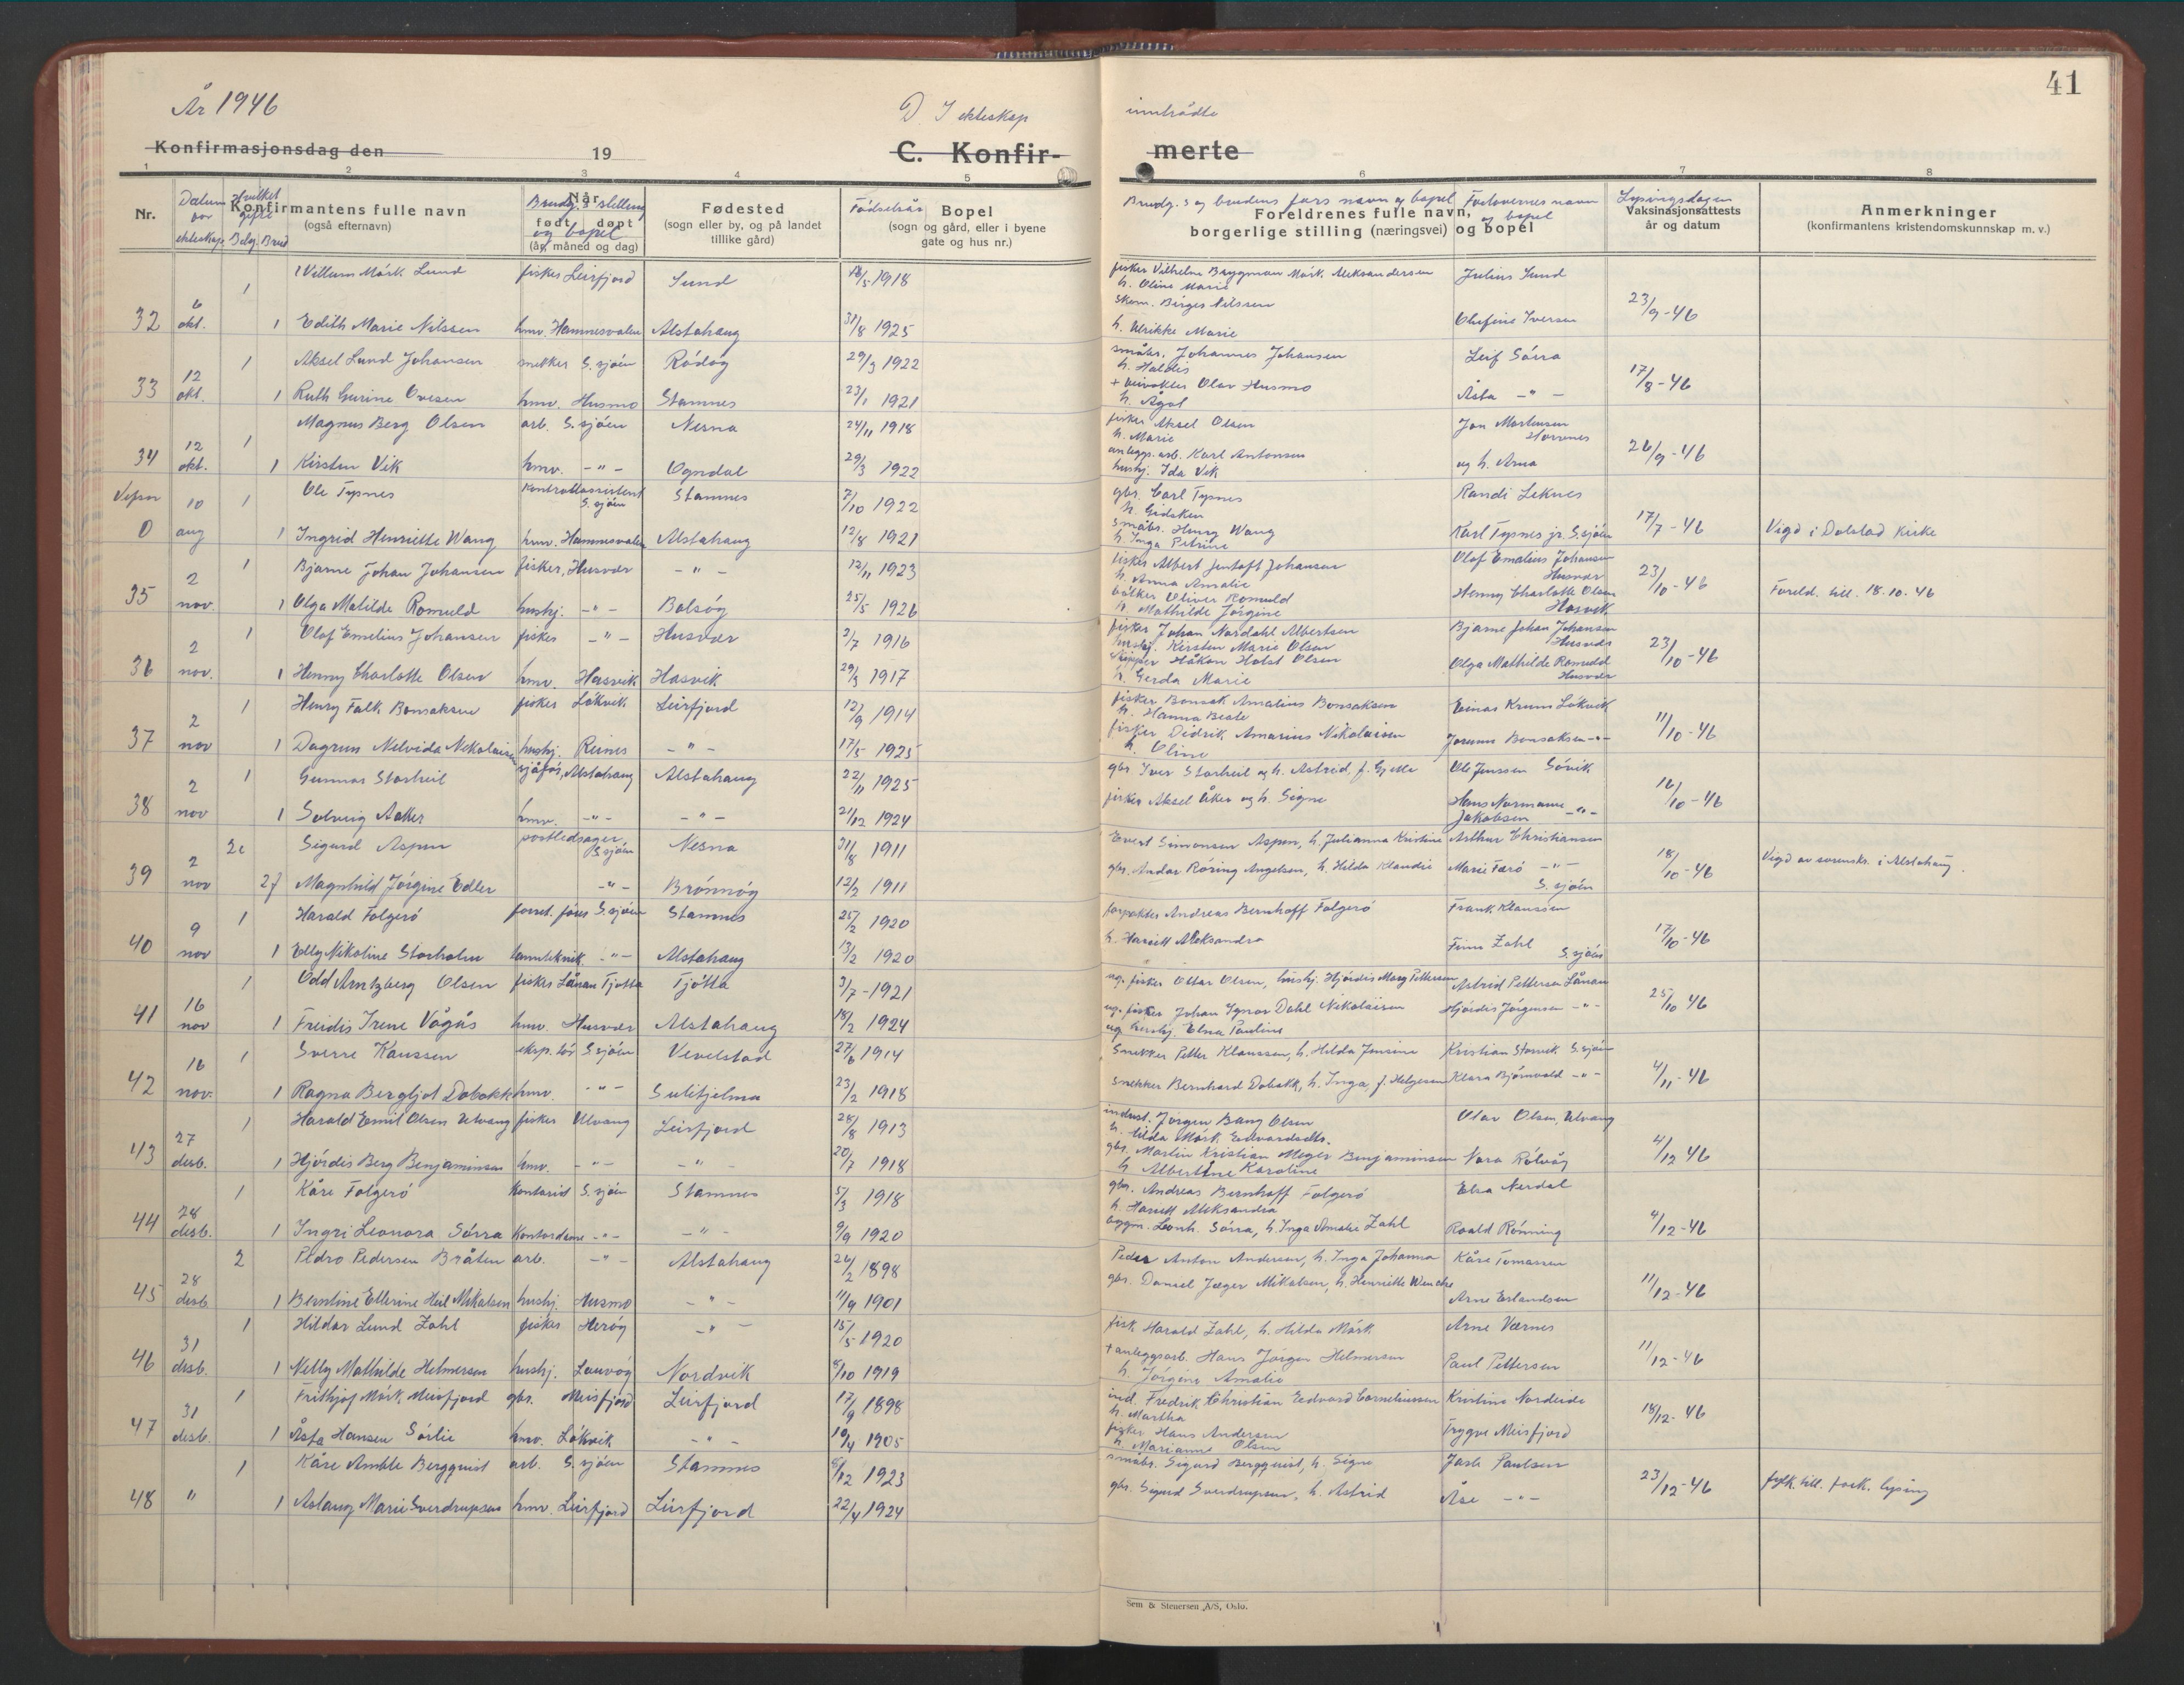 41
År 1946
D. I ekteskap inntrådte
Konfirmasjonsdag den 19 C. Konfir- merte
1 2 3 4 5 6 7 8
Nr. Konfirmantens fulle navn (også efternavn)
Datum for ekteskap. Hvilket gifte Belg. Brud
Når født døpt (år, måned og dag)
Brudg.s stilling og bopel
Fødested (sogn eller by, og på landet tillike gård)
Fødselsår Bopel (sogn og gård, eller i byene gate og hus nr.)
Brudg.s og brudens fars navn og bopel Forlovernes navn og bopel
Foreldrenes fulle navn, borgerlige stilling (næringsvei) og bopel
Lysningsdagen
Vaksinasjonsattests år og datum
Anmerkninger (konfirmantens kristendomskunnskap m. v.)
1 Villum Mörk Lund fisker Leirfjord Sund 18/5 1918 fisker Vilhelm Brygman Mörk Aleksandersen Julius Lund
h. Oline Marie
32 6 okt. 1 Edith Marie Nilssen hmv. Hamnesvalen Alstahaug 31/8 1925 skom. Birger Nilssen Olufine Iversen 23/9-46
h. Ulrikke Marie
1 Aksel Lund Johansen snekker S.sjøen Rödöy 29/3 1922 småbr. Johannes Johansen Leif Sörra
h. Haldis
33 12 okt. 1 Ruth Gurine Ovesen hmv. Husmo Stamnes 23/1 1921 Olav Husmo Åsta -"- 17/8-46
h. Ågot
1 Magnus Berg Olsen arb. S.sjøen Nesna 24/11 1918 fisker Aksel Olsen Jon Mortensen
h. Marie
34 12 okt. 1 Kirsten Vik hmv. -"- Ogndal 29/3 1922 anleggs.arb. Karl Antonsen og h. Arna 26/9-46
hushj. Ida Vik
Vefsn 1 Ole Tysnes kontrollassistent S.sjøen Stamnes 7/10 1922 gbr. Carl Tysnes Randi Leknes
h. Gidsken
0 10 aug 1 Ingrid Henriette Wang hmv. Hamnesvalen Alstahaug 12/8 1921 småbr. Henry Wang Karl Tysnes jr. S.sjøen 17/7-46 Vigd i Dolstad kirke
h. Inga Petrine
1 Bjarne Johan Johansen fisker, Husvær -"- 12/11 1923 fisker Albert Jentoft Johansen Olof Emelius Johansen Husvær
h. Anna Amalie
35 2 nov. 1 Olga Matilde Romuld hushj. -"- Bolsöy 25/5 1926 bölker Oliver Romuld Henny Charlotte Olsen Hasvik 23/10-46 Foreld. till. 18.10.46
h. Mathilde Jörgine
1 Olof Emelius Johansen fisker -"- Husvær 2/7 1916 fisker Johan Nordahl Albertsen Bjarne Johan Johansen Husvær
hushj. Kirsten Marie Olsen
36 2 nov. 1 Henny Charlotte Olsen hmv. Hasvik Hasvik 29/3 1917 skipper Håkon Holst Olsen Olga Mathilde Romuld Husvær 23/10-46
h. Gerda Marie
1 Henry Falk Bonsaksen fisker Lökvik Leirfjord 12/9 1914 fisker Bonsak Amalius Bonsaksen Einar Krum Lökvik
h. Hanna Beate
37 2 nov 1 Dagrun Nelvida Nikolaisen hushj. Reines -"- 17/5 1925 fisker Didrik Amarius Nikolaisen Jorunn Bonsaksen -"- 11/10-46
h. Oline
1 Gunnar Storheil sjåfør, Alstahaug Alstahaug 22/11 1925 gbr Iver Storheil og h. Astrid, f. Gjelle Ole Jenssen Sövik
38 2 nov 1 Solveig Aaker hmv. -"- -"- 21/12 1924 fisker Aksel Åker og h. Signe Hans Normann Jakobsen -"- 16/10-46
2e Sigurd Aspen postledsager S.sjøen Nesna 31/8 1911 Evert Simonsen Aspen, h. Julianna Kristine Arthur Christiansen
39 2 nov 2f Magnhild Jörgine Edler -"- Brönnöy 12/2 1911 gbr. Andor Röring Angelsen, h. Hilda Klaudie Marie Færö -"- S.sjøen 18/10-46 Vigd av sorenskr. i Alstahaug.
1 Harald Folgerö forret. förer S.sjøen Stamnes 25/2 1920 forpakter Andreas Bernhoff Folgerö Frank Klaussen
40 9 nov 1 Elly Nikoline Storholm tannteknik. -"- Alstahaug 13/2 1920 h. Harriett Aleksandra Finn Zahl S.sjøen 17/10-46
1 Odd Arntzberg Olsen fisker Lånan Tjøtta Tjötta 3/7-1921 ug. fisker Ottar Olsen, hushj. Hjördis Mary Pettersen Astrid Pettersen Lånan
41 16 nov 1 Freidis Irene Vågås hmv. Husvær Alstahaug 18/2 1924 ug. fisker Johan Ignor Dahl Nikolaisen Hjördis Jörgensen -"- 25/10 46
ug. hushj. Elna Pauline
1 Sverre Kaussen eksp. bör S.sjøen Vevelstad 27/6 1914 Snekker Petter Klaussen, h. Hilda Jensine Kristian Storvik S.sjøen
42 16 nov. 1 Ragna Bergljot Dobakk hmv. -"- Sulitjelma 23/2 1918 snekker Bernhard Dobakk, h. Inga, f. Helgesen Klara Björnvold -"- 4/11-46
1 Harald Emil Olsen Ulvang fisker Ulvang Leirfjord 28/8 1913 indust. Jörgen Bang Olsen Olav Olsen, Ulvang
h. Hilda Mörk Edvardsdtr.
43 27 desb. 1 Hjördis Berg Benjaminsen hmv. -"- -"- 20/7 1918 gbr. Martin Kristian Meyer Benjaminsen Nora Rölvåg 4/12 46
h Albertine Karoline
1 Kåre Folgerö Kontorist S.sjøen Stamnes 5/3 1918 gbr. Andreas Bernhoff Folgerö Elsa Nerdal
h. Harriett Aleksandra
44 28 desb. 1 Ingri Leonora Sörra Kontordame -"- -"- 9/9 1920 byggm. Leonh. Sörra, h. Inga Amalie Zahl Roald Rönning 4/12-46
2 Pedro Pedersen Bråten arb. -"- Alstahaug 26/2 1898 Peder Anton Andersen, h. Inga Johanna Kåre Tomassen
45 28 desb 1 Berntine Ellerine Heil Mikalsen hushj. Husmo -"- 11/9 1901 gbr. Daniel Jæger Mikalsen, h. Henriette Wenche Arne Erlandsen 11/12-46
1 Hildar Lund Zahl fisker Heröy -"- 15/5 1920 fisk Harald Zahl, h. Hilda Mörk Arne Værnes
46 31 desb. 1 Nelly Mathilde Helmersen hushj. Lauvöy Nordvik 8/10 1919 + anleggsarb. Hans Jörgen Helmersen Paul Pettersen 11/12-46
h. Jörgine Amalie
1 Frithjof Mörk Meisfjord gbr. Meisfjord Leirfjord 17/9 1898 ind. Fredrik Christian Eedvard Corneliussen Kristine Nordeide
h. Martha
47 31 desb. 1 Åsta Hansen Sörlie hmv. Lökvik -"- 19/4 1905 fisker Hans Andersen Trygve Meisfjord 18/12-46
h. Marianne Olsen
1 Kåre Amble Bergquist arb. S.sjøen Stamnes 8/12 1923 småbr. Sigurd Bergquist, h. Signe Paulsen
48 " 1 Aslaug Marie Sverdrupsen hmv. Leirfjord Leirfjord 22/4 1924 gbr. Sigurd Sverdrupsen, h. Astrid Åse -"- 23/12-46 fylk. till. fork. lysing
Sem & Stenersen A/S, Oslo.